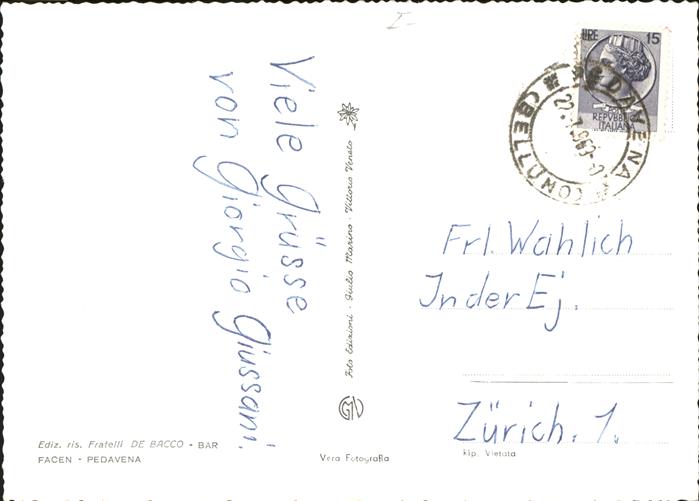 Viele Grüsse
von Giorgio Giussani.
Foto Edizioni - Giulio Marino - Vittorio Veneto
LIRE 15
REPVBBLICA
ITALIANA
(BELLUNO)
Frl. Wahlich
In der Ej.
Zürich. 1.
Ediz. ris. Fratelli DE BACCO - BAR
FACEN - PEDAVENA
Vera Fotografia
rip. Vietata